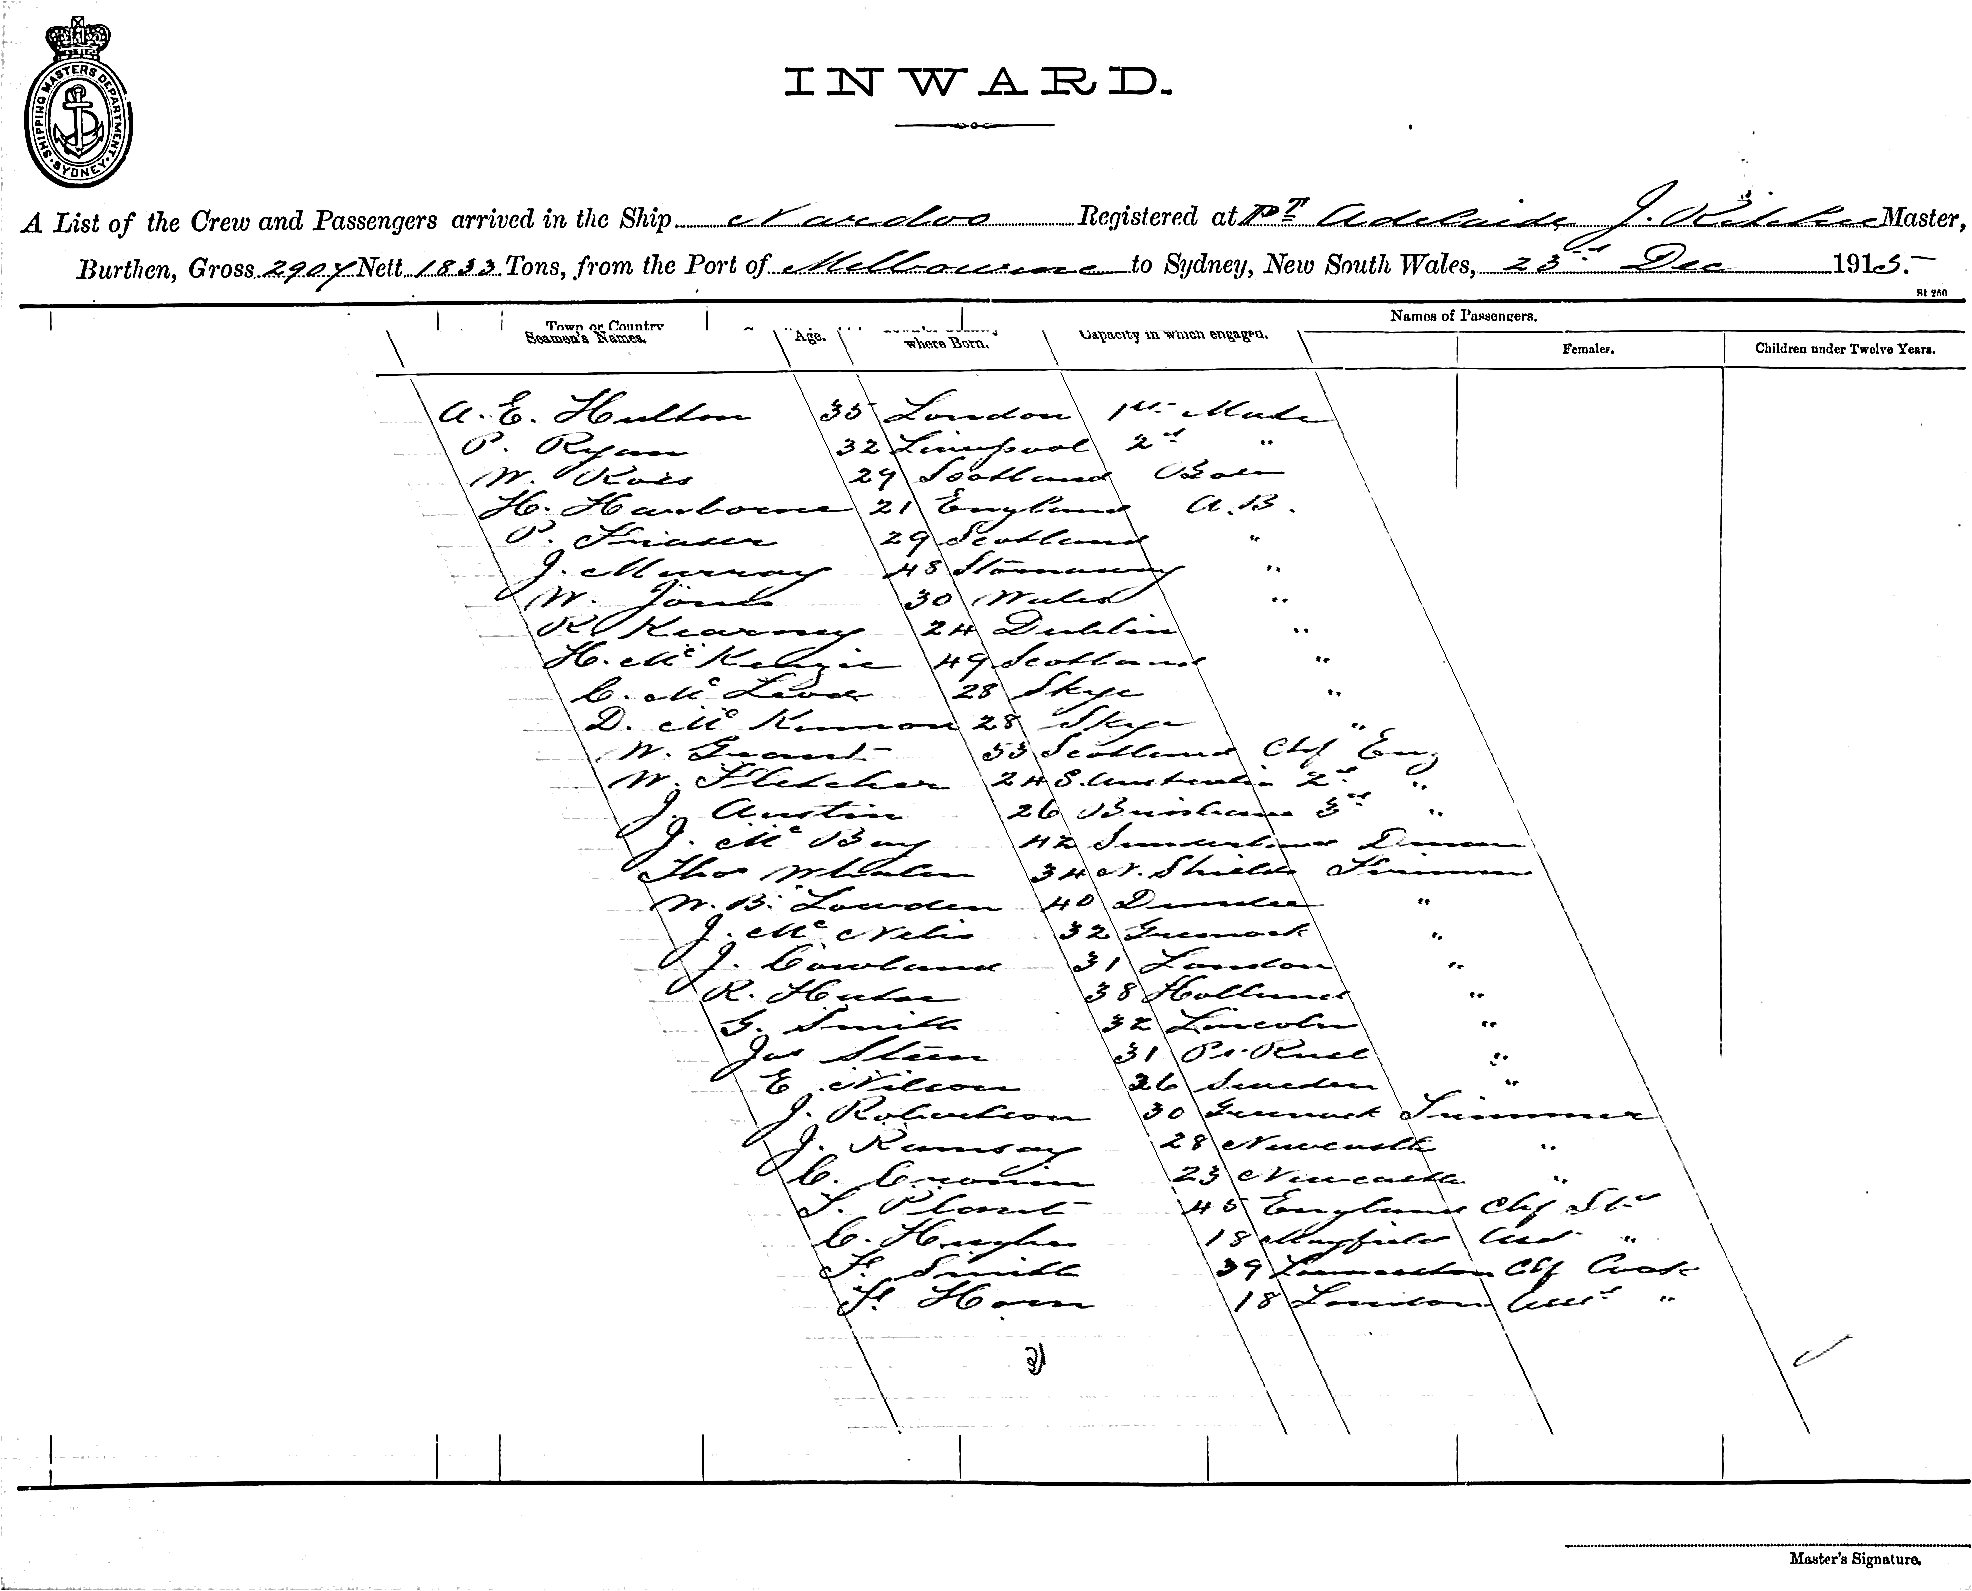 SHIPPING MASTERS DEPARTMENT · SYDNEY ·
INWARD.
A List of the Crew and Passengers arrived in the Ship Nardoo Registered at Pt Adelaide J. Ritchie Master,
Burthen, Gross 2907 Nett 1833 Tons, from the Port of Melbourne to Sydney, New South Wales, 23rd Dec 1915.
St 260
Names of Passengers.
Town or Country
Seamen's Names. Age. where Born. Capacity in which engaged. Females. Children under Twelve Years.
A. E. Hulton 35 London 1st Mate
P. Ryan 32 Liverpool 2d "
W. Ross 29 Scotland Bosn
H. Hawborne 21 England A.B.
P. Fraser 29 Scotland "
J. Murray 48 Stornaway "
W. Jones 30 Wales "
R. Kearney 24 Dublin "
H. McKenzie 49 Scotland "
C. McLeod 28 Skye "
D. McKinnon 28 Skye "
W. Grant 53 Scotland Chf Eng
W. Fletcher 24 S. Australia 2d "
J. Austin 26 Brisbane 3rd "
J. McBay 42 Sunderland Dman
Thos Whalen 34 N. Shields Fireman
W. B. Lowden 40 Dundee "
J. McNelis 32 Greenock "
J. Cowland 31 London "
R. 38 Holland "
G. Smith 32 Lincoln "
Jas Steen 31 "
E. Nilson 26 Sweden "
J. Robertson 30 Greenock Trimmer
J. Ramsay 28 Newcastle "
C. Cronin 23 Newcastle "
S. Plant 45 England Chf Std
C. Hughes 18 Mayfield Asst "
F. Smith 39 Launceston Chf Cook
F. Horn 18 London Asst "
31
Master's Signature.